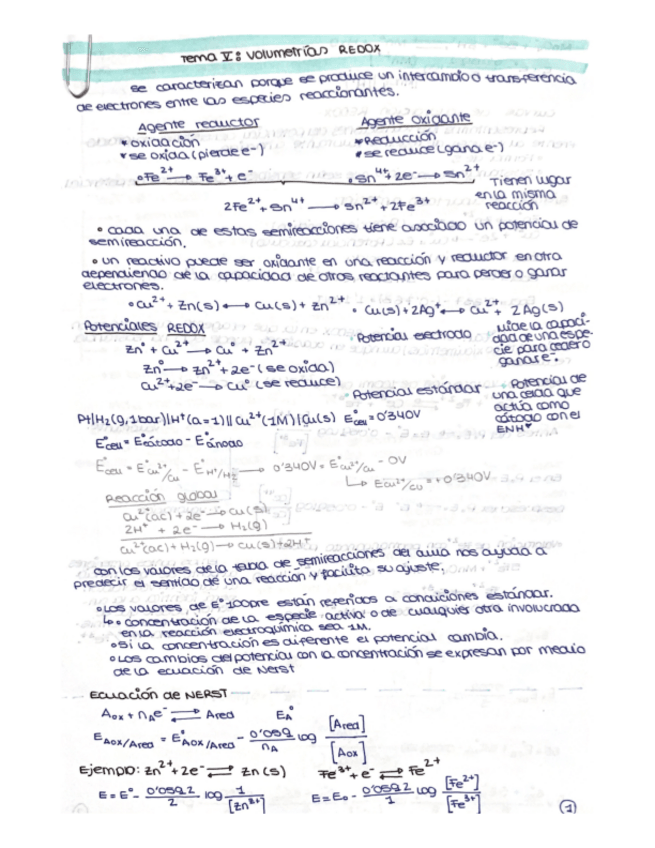 Tema V: Volumetrías REDOX
se caracterizan porque se produce un intercambio o transferencia
de electrones entre las especies reaccionantes.
Agente reductor
Agente oxidante
• oxidación
• Reducción
• se oxida (pierde e-)
• se reduce (gana e-)
• Fe²⁺ → Fe³⁺ + e⁻
• Sn⁴⁺ + 2e⁻ → Sn²⁺
2Fe²⁺ + Sn⁴⁺ → Sn²⁺ + 2Fe³⁺
Tienen lugar
en la misma
reacción
• cada una de estas semireacciones tiene asociado un potencial de
semireacción.
• un reactivo puede ser oxidante en una reacción y reductor en otra
dependiendo de la capacidad de otros reactantes para perder o ganar
electrones.
• Cu²⁺ + Zn(s) ↔ Cu(s) + Zn²⁺ • Cu(s) + 2Ag⁺ ↔ Cu²⁺ + 2Ag(s)
Potenciales REDOX
Zn° + Cu²⁺ → Cu° + Zn²⁺
Zn° → Zn²⁺ + 2e⁻ (se oxida)
Cu²⁺ + 2e⁻ → Cu° (se reduce)
• Potencial electrodo
mide la capaci-
dad de una espe-
cie para ceder o
ganar e⁻.
• Potencial estándar
• Potencial de
una celda que
actúa como
cátodo con el
ENH
Pt|H₂(g,1bar)|H⁺(a=1)||Cu²⁺(1M)|Cu(s) E°cell = 0'340V
E°cell = E°cátodo - E°ánodo
E°cell = E°Cu²⁺/Cu - E°H⁺/H₂ → 0'340V = E°Cu²⁺/Cu - 0V
↳ E°Cu²⁺/Cu = +0'340V
Reacción global
Cu²⁺(ac) + 2e⁻ → Cu(s)
2H⁺ + 2e⁻ → H₂(g)
Cu²⁺(ac) + H₂(g) → Cu(s) + 2H⁺
con los valores de la tabla de semireacciones del aula nos ayuda a
predecir el sentido de una reacción y facilita su ajuste.
• Los valores de E° siempre están referidos a condiciones estándar.
↳ • concentración de la especie activa o de cualquier otra involucrada
en la reacción electroquímica sea 1M.
• si la concentración es diferente el potencial cambia.
• Los cambios del potencial con la concentración se expresan por medio
de la ecuación de Nerst
Ecuación de NERST
Aox + nAe⁻ ⇌ Ared E°A
EAox/Ared = E°Aox/Ared - 0'0592/nA log [Ared]/[Aox]
Ejemplo: Zn²⁺ + 2e⁻ ⇌ Zn(s) Fe³⁺ + e⁻ ⇌ Fe²⁺
E = E° - 0'0592/2 log 1/[Zn²⁺] E = E₀ - 0'0592/1 log [Fe²⁺]/[Fe³⁺]
1